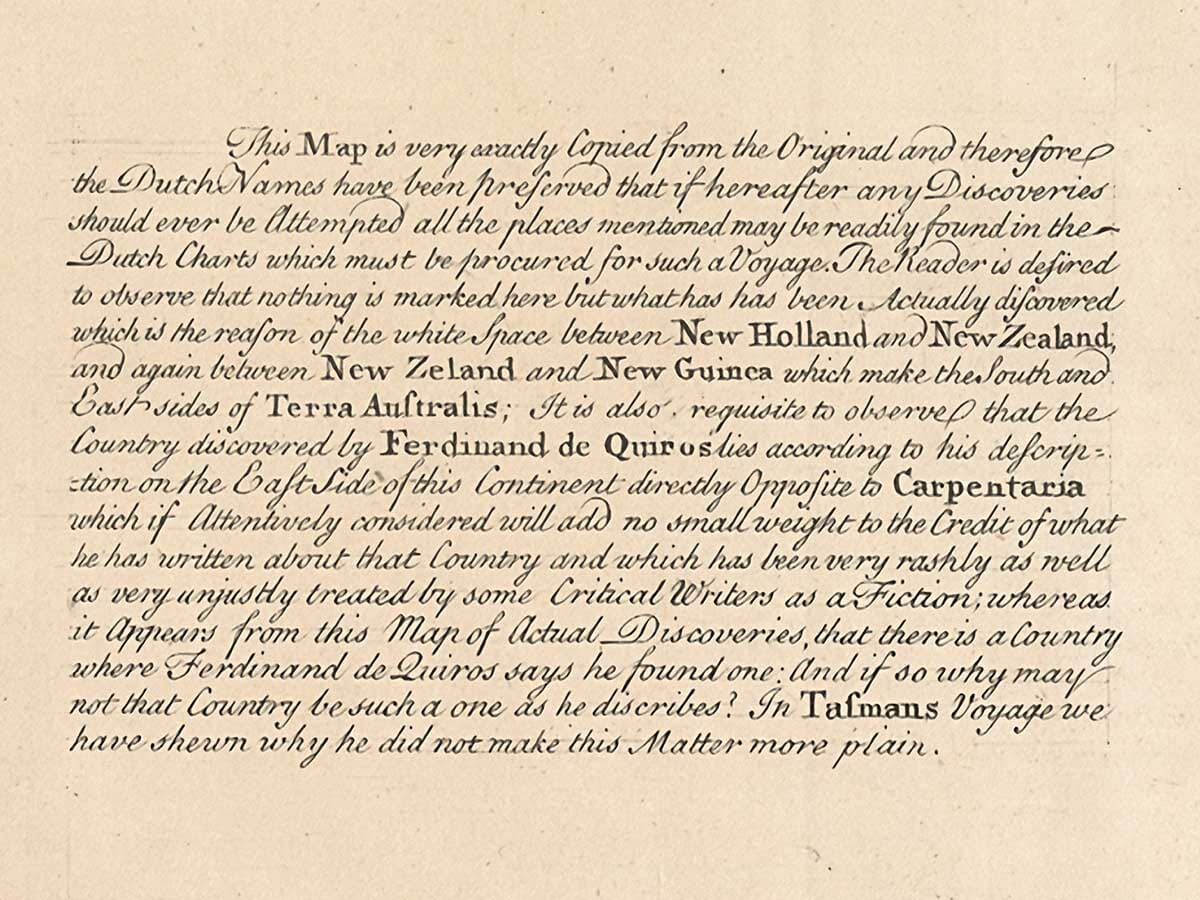 This Map is very exactly Copied from the Original and therefore
the Dutch Names have been preſerved that if hereafter any Discoveries
should ever be Attempted all the places mentioned may be readily found in the
Dutch Charts which must be procured for such a Voyage. The Reader is deſired
to observe that nothing is marked here but what has has been Actually diſcovered
which is the reaſon of the white Space between New Holland and New Zealand,
and again between New Zeland and New Guinea which make the South and
Eaſt sides of Terra Auſtralis; It is also requisite to observe that the
Country discovered by Ferdinand de Quiros lies according to his deſcrip=
=tion on the Eaſt Side of this Continent directly Oppoſite to Carpentaria
which if Attentively considered will add no small weight to the Credit of what
he has written about that Country and which has been very rashly as well
as very unjustly treated by some Critical Writers as a Fiction; whereas
it Appears from this Map of Actual Discoveries, that there is a Country
where Ferdinand de Quiros says he found one: And if so why may
not that Country be such a one as he discribes? In Taſmans Voyage we
have shewn why he did not make this Matter more plain.